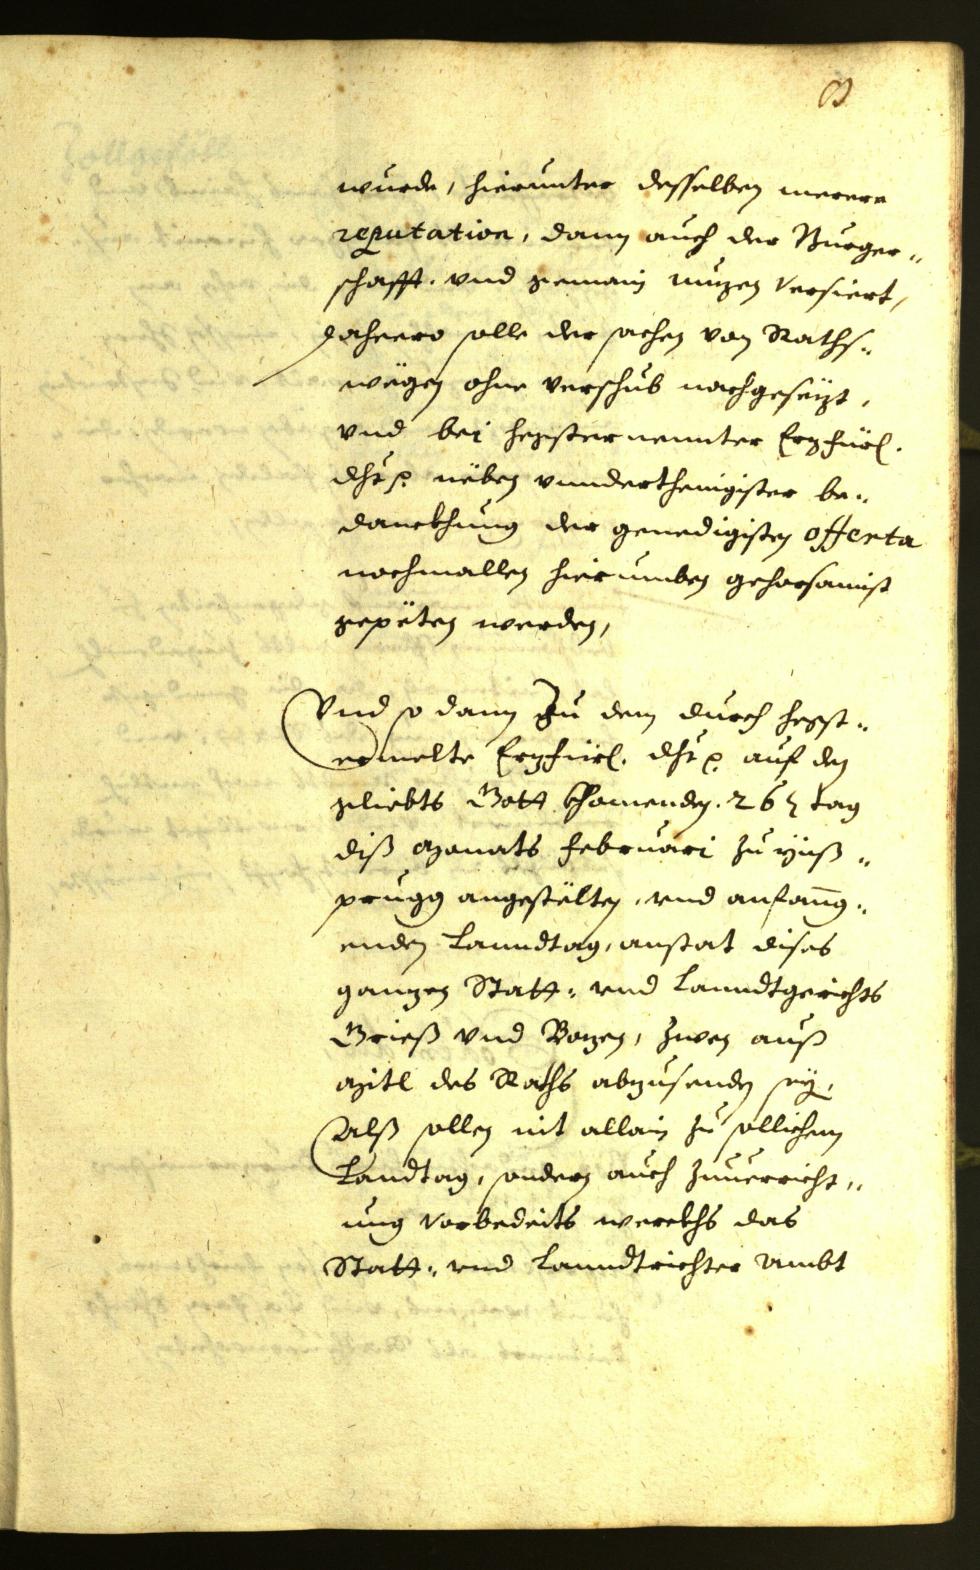 wurde, hierunter desselben merere
reputation, dann auch der Burger„
schafft. vnd gemain nuzen Versiert,
dahero solle der sachen von Raths„
wegen ohne verschub nachgesetzt,
vnd bei hegsternennter Erzfürl.
dht neben vnnderthenigister be„
danckhung der genedigisten offerta
nochmallen hierumben gehorsamist
gepëten werden,
Vnd so dann Zu dem durch hegst„
ermelte Erzfürl. dht auf den
geliebts Gott khomenden. 26 tag
diß Monats februari zu Ynß„
prugg angestëlten, vnd anfanng„
enden Lanndtag, anstat dises
ganzen Statt„ vnd Lanndtgerichts
Grieß vnd Bozen, Zwen auß
Mitl des Raths abzusenden seÿ,
Alß sollen nit allain zu sollichem
Landtag, sondern auch Zuuerricht„
ung Vorbedeits werckhs das
Statt„ vnd Lanndtrichter Ambt